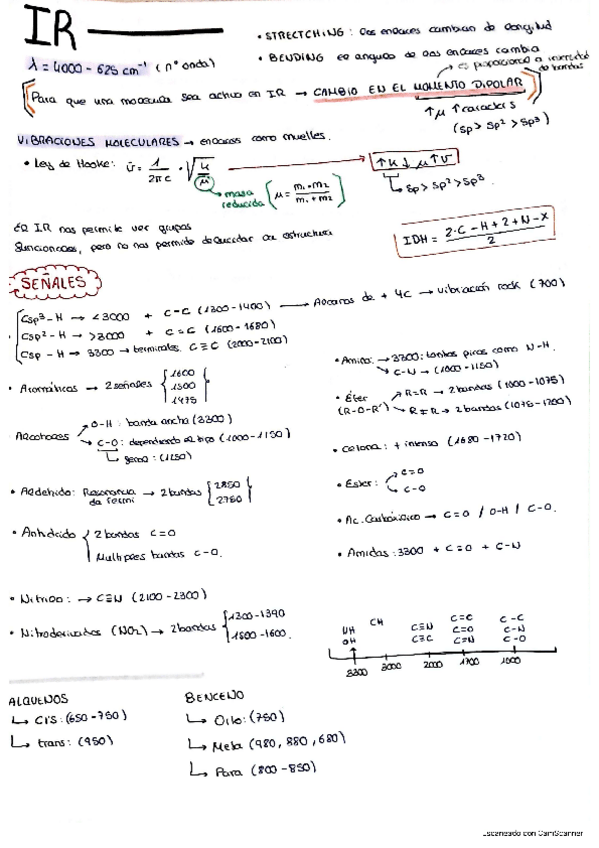 IR
• STRECTCHING : los enlaces cambian de longitud
• BENDING el angulo de los enlaces cambia
λ = 4000 - 625 cm⁻¹ (nº onda)
es proporcional a intensidad de bandas
Para que una molecula sea activa en IR → CAMBIO EN EL MOMENTO DIPOLAR
↑μ ↑caracter s
(sp > sp² > sp³)
VIBRACIONES MOLECULARES → enlaces como muelles.
• Ley de Hooke: ῡ = 1/2πc · √(k/μ)
masa reducida (μ = m₁·m₂ / m₁+m₂)
↑k ↓μ ↑ῡ
sp > sp² > sp³
El IR nos permite ver grupos
funcionales, pero no nos permite dilucidar la estructura
IDH = (2·C - H + 2 + N - X) / 2
SEÑALES
Csp³-H → <3000 + C-C (1300-1400) → Alcanos de + 4C → vibración rock (700)
Csp²-H → >3000 + C=C (1600-1680)
Csp-H → 3300 → terminales. C≡C (2000-2100)
• Aromáticos → 2 señales { 1600
1500
1475
Alcoholes → O-H : banda ancha (3300)
→ C-O : dependiendo el tipo (1000-1150)
fenol : (1250)
• Aldehido: Resonancia de fermi → 2 bandas { 2850
2750
• Anhidrido { 2 bandas C=O
Multiples bandas C-O.
• Nitrilo : → C≡N (2100-2300)
• Nitroderivados (NO2) → 2 bandas { 1300-1390
1500-1600.
• Amina: → 3300: tantos picos como N-H.
→ C-N → (1000-1150)
• Éter (R-O-R') → R=R → 2 bandas (1000-1075)
→ R≠R → 2 bandas (1075-1200)
• Cetona : + intenso (1680-1720)
• Ester : → C=O
→ C-O
• Ac. Carboxilico → C=O / O-H / C-O.
• Amidas : 3300 + C=O + C-N
NH OH
CH
C≡N C≡C
C=C C=O C=N
C-C C-N C-O
3300 3000 2000 1700 1000
ALQUENOS
↳ CIS : (650-750)
↳ trans : (950)
BENCENO
↳ Orto : (750)
↳ Meta (980, 880, 680)
↳ Para (800-850)
Escaneado con CamScanner